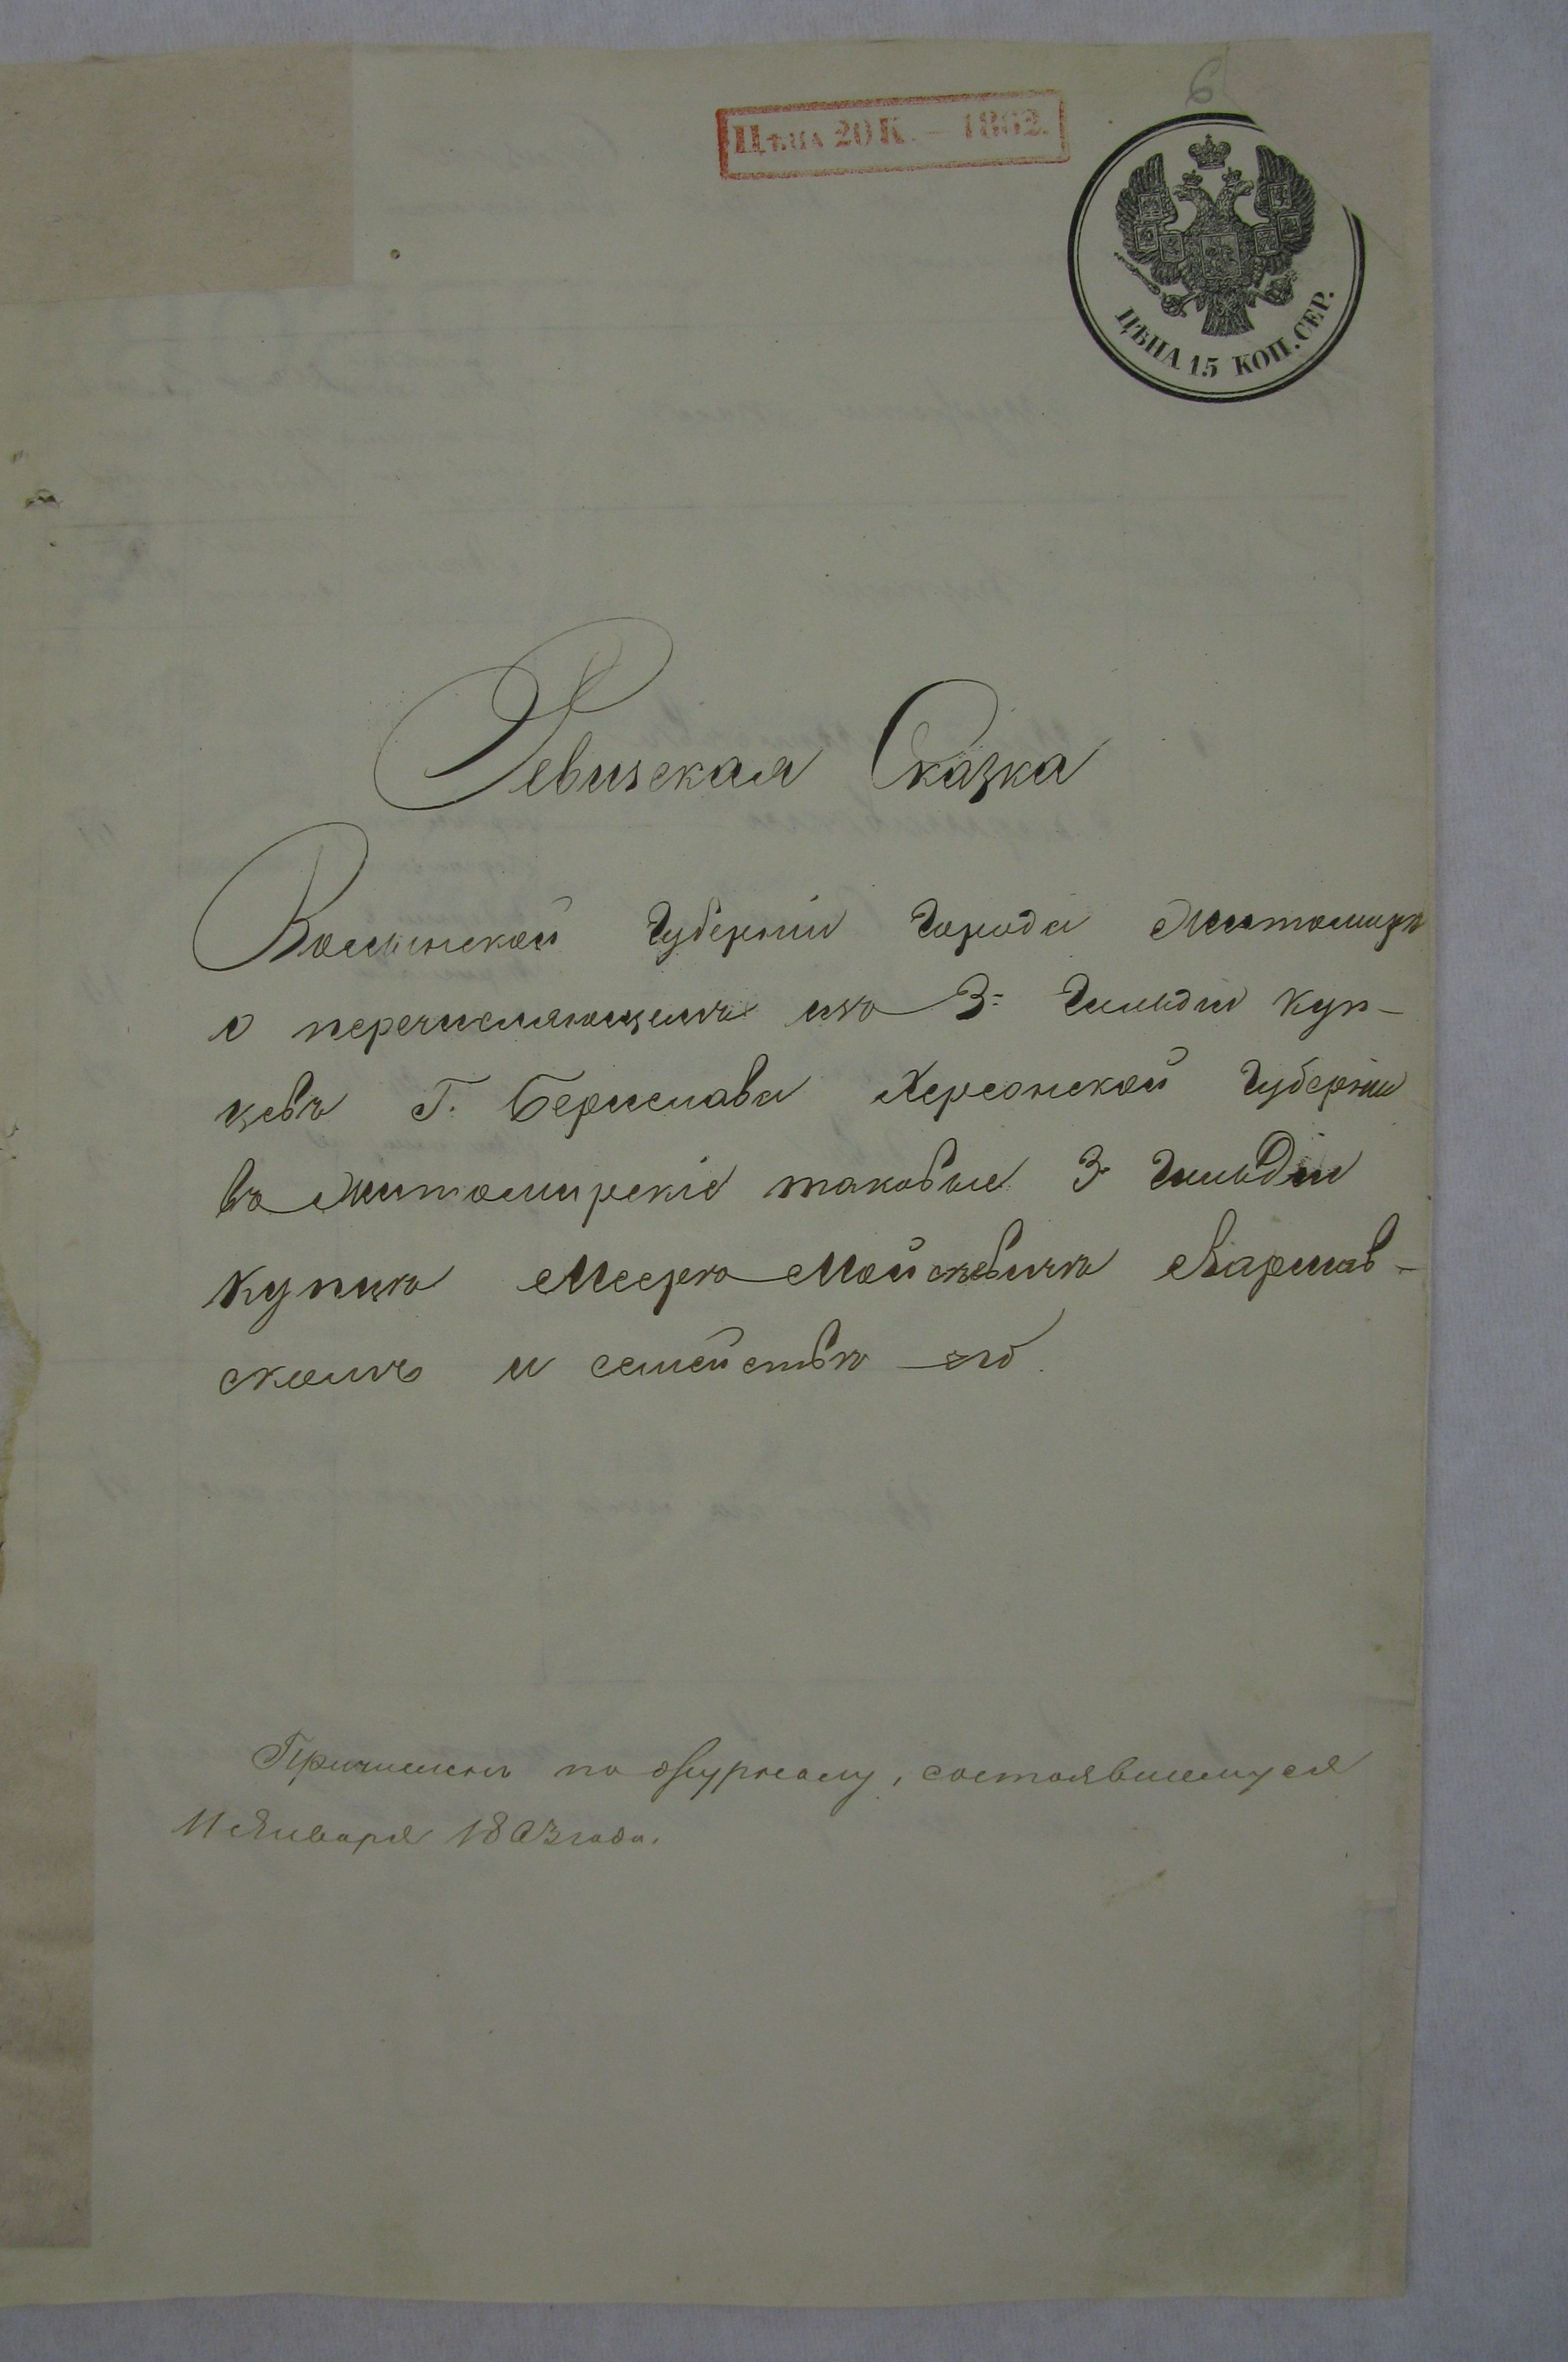 6
Цѣна 20 К. — 1862.
ЦѢНА 15 КОП. СЕР.
Ревизская Сказка
Волынской Губерніи Города Житомира
о перечисляющемъ изъ 3й Гильдіи Куп-
цевъ Г. Берислава Херсонской Губерніи
въ Житомирскіе таковые 3й Гильдіи
купцѣ Меерѣ Мойсѣевичѣ Варшав-
скомъ и семействѣ его.
Причисленъ по журналу, состоявшемуся
11 Января 1863 года.